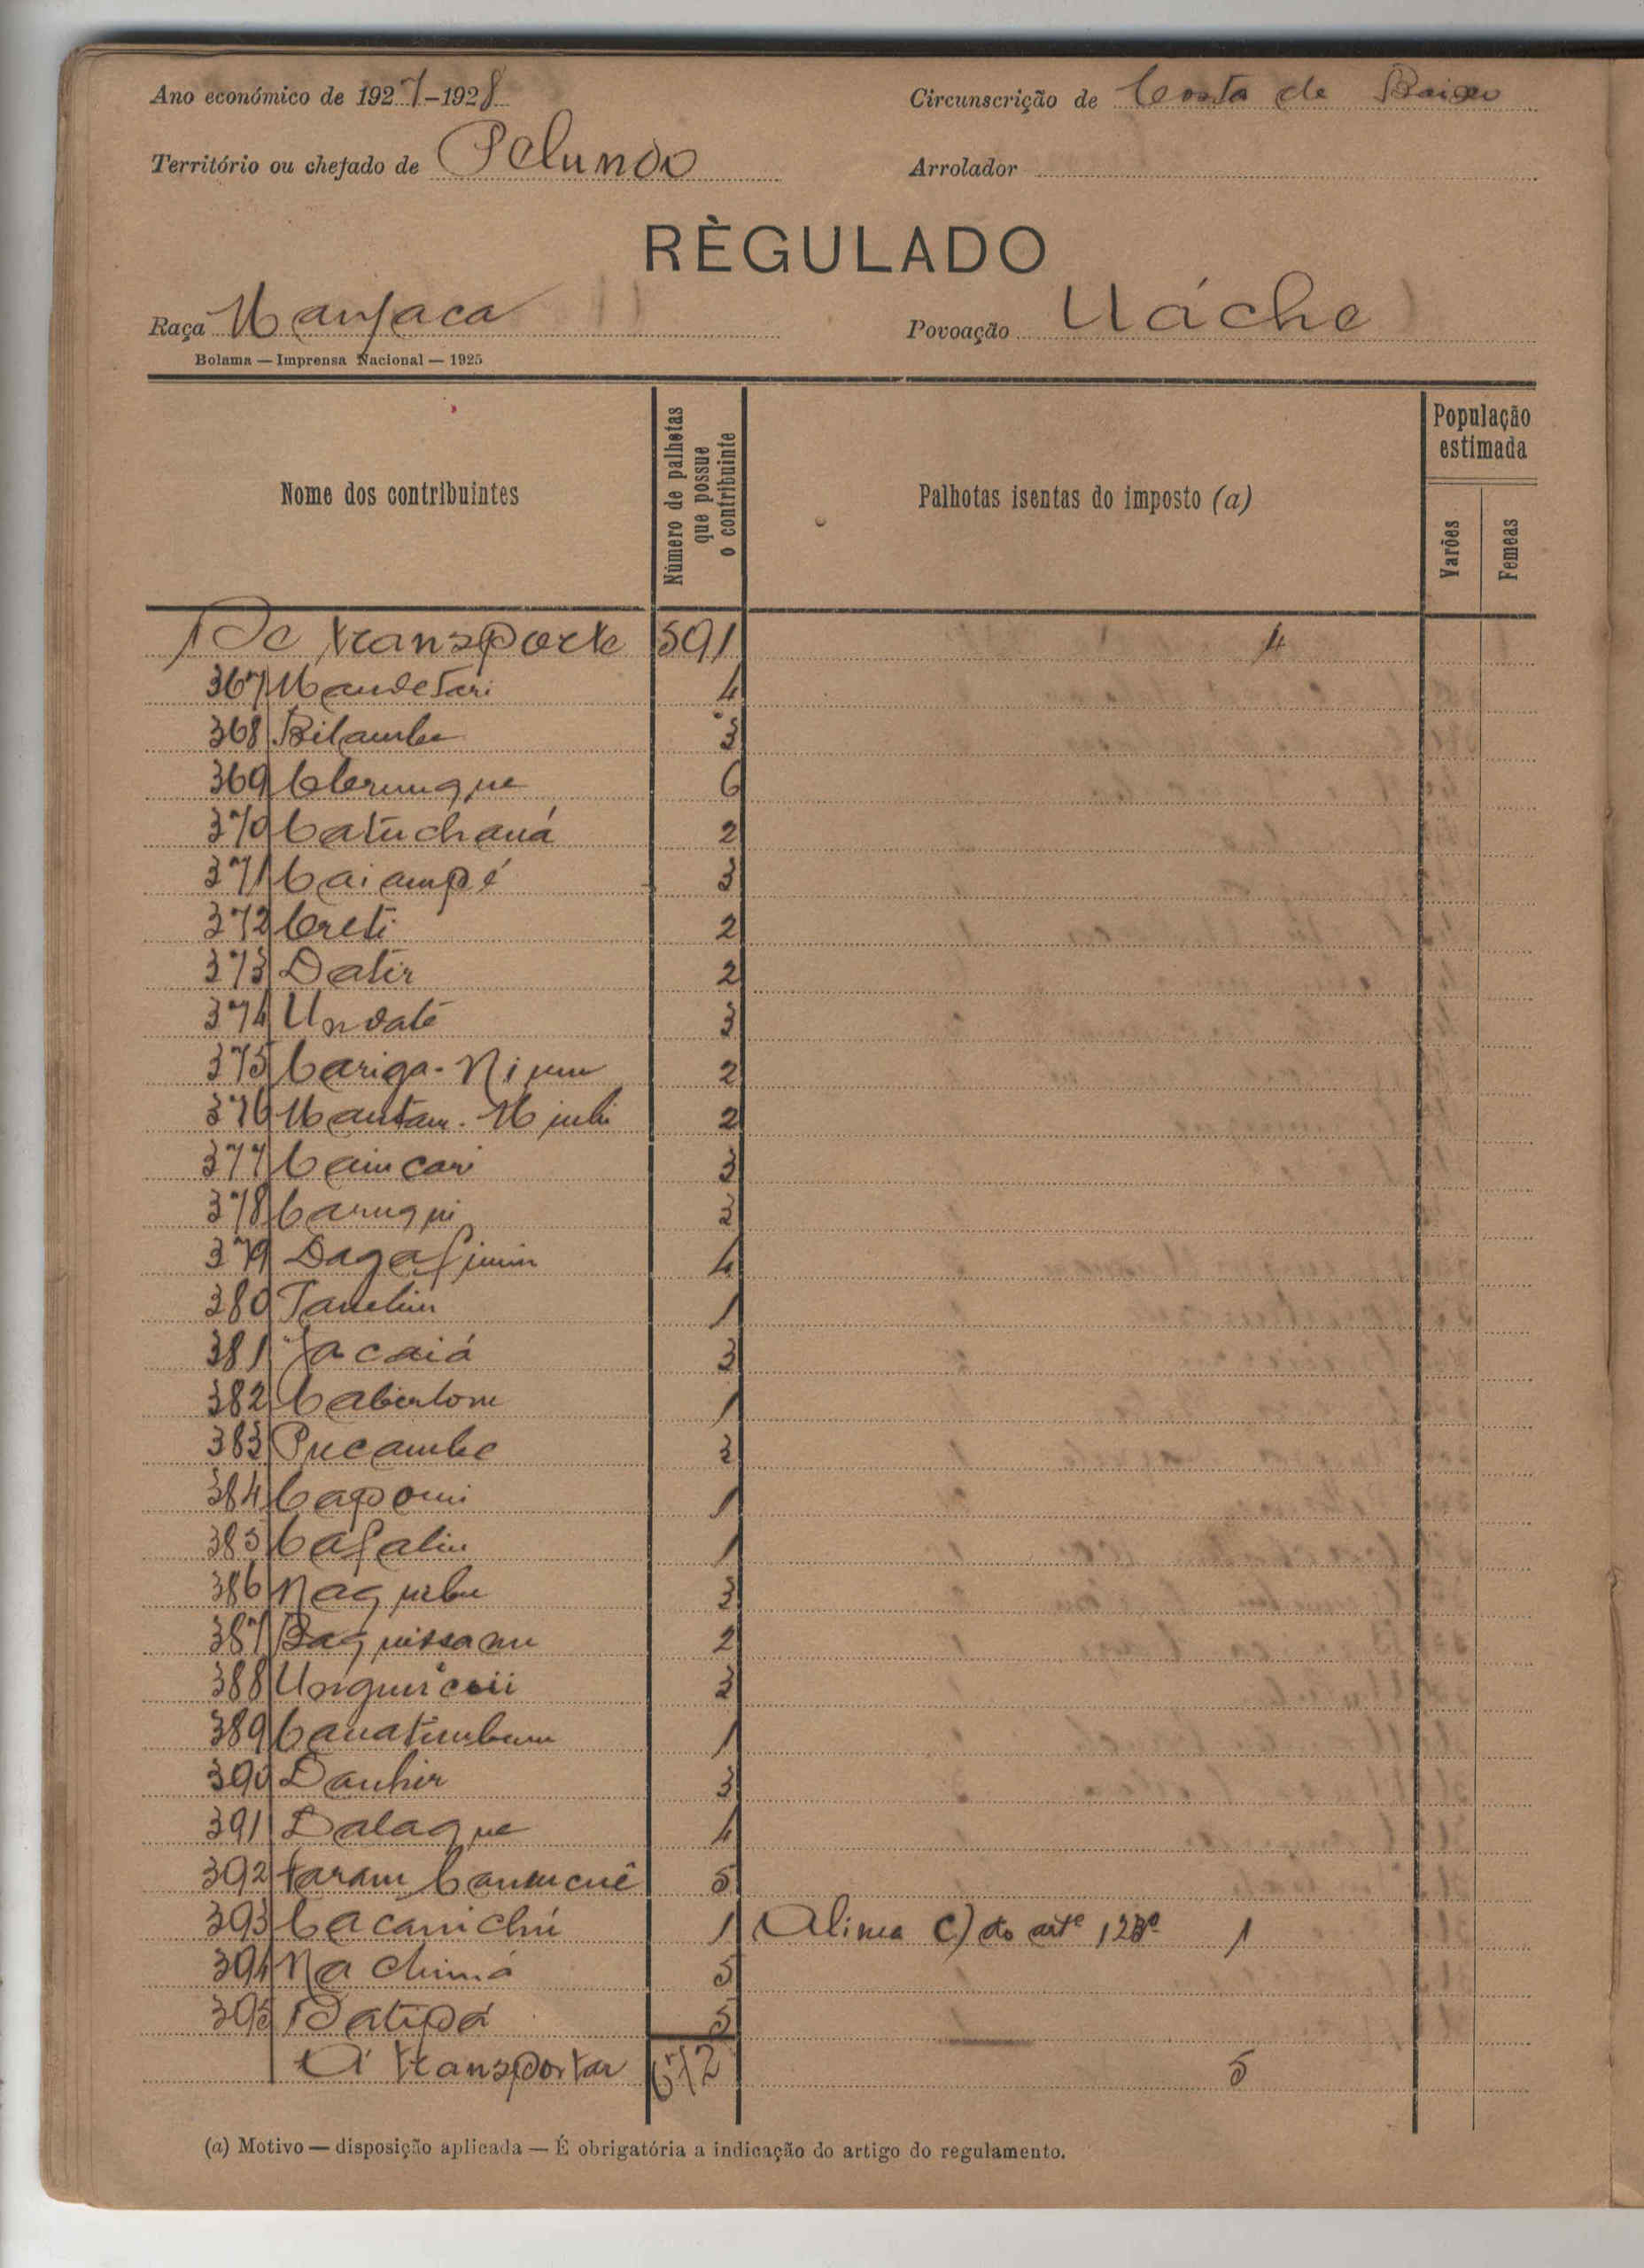 Ano económico de 1927-1928
Circunscrição de Costa de Baixo
Território ou chefado de Pelundo
Arrolador
RÈGULADO
Raça Manjaca
Povoação Uáche
Bolama — Imprensa Nacional — 1925
Nome dos contribuintes
Número de palhotas que possue o contribuinte
Palhotas isentas do imposto (a)
População estimada
Varões
Femeas
De transporte 591 4
367 Mandetari 4
368 Bilambe 3
369 Clerunque 6
370 Catuchaná 2
371 Caiampé 3
372 Creti 2
373 Datir 2
374 Undaté 3
375 Cariga-Nium 2
376 Mantam-Miubi 2
377 Caincari 3
378 Carnqui 2
379 Dagafimin 4
380 Tanelin 1
381 Jacaiá 3
382 1
383 Pucambe 3
384 Capomi 1
385 Cafalin 1
386 Naquebu 3
387 Baquissanu 2
388 3
389 Canatimbum 1
390 Danhir 3
391 Dalaque 4
392 taram Canucuê 5
393 Cacanichú 1 Alinea C) do artº 123º 1
394 Nachimá 5
395 Batipá 5
A transportar 672 5
(a) Motivo — disposição aplicada — É obrigatória a indicação do artigo do regulamento.